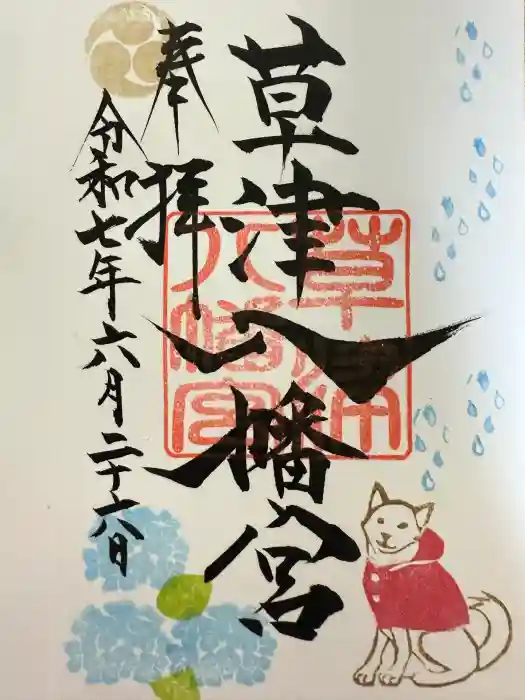 奉拝
草津八幡宮
草津八幡宮
令和七年六月二十六日